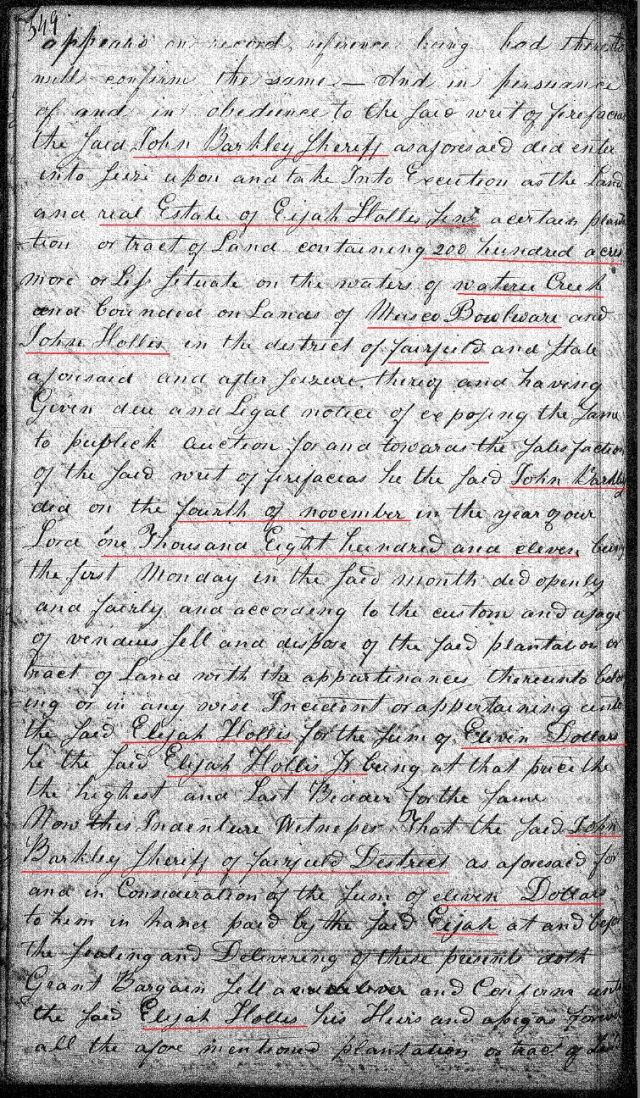 349
appears on record, reference being had thereto
will confirm the same — And in persuance
of and in obedience to the said writ of firefacias
the said John Barkley Sheriff as aforesaed did enter
into seize upon and take Into Execution as the Land
and real Estate of Eijah Hollis Senr a certain planta
tion or tract of Land containing 200 hundred acres
more or Less Situate on the waters of wateree Creek
and bounded on Lands of Museo Boulware and
John Hollis in the district of fairfield and State
aforesaid and after seizure thereof and having
Given due and Legal notice of exposing the same
to publick auction for and towards the satisfaction
of the said writ of firefacias he the said John Barkley
did on the fourth of november in the year of our
Lord one Thousand Eight hundred and eleven being
the first Monday in the said month did openly
and fairly and according to the custom and usage
of vendues sell and dispose of the said plantation or
tract of Land with the appurtinances thereunto belong
ing or in any wise Incident or appertaining unto
the said Elijah Hollis for the sum of Eleven Dollars
he the said Elijah Hollis Jr being at that price the
the highest and Last Bidder for the same
Now this Indenture Witnesses That the said John
Barkley Sheriff of fairfield District as aforesaid for
and in Consideration of the sum of eleven Dollars
to him in hand paid by the said Eijah at and before
the sealing and Delivering of these presents doth
Grant Bargain sell and Confirm unto
the said Elijah Hollis his Heirs and assigns forever
all the afore mentioned plantation or tract of Land